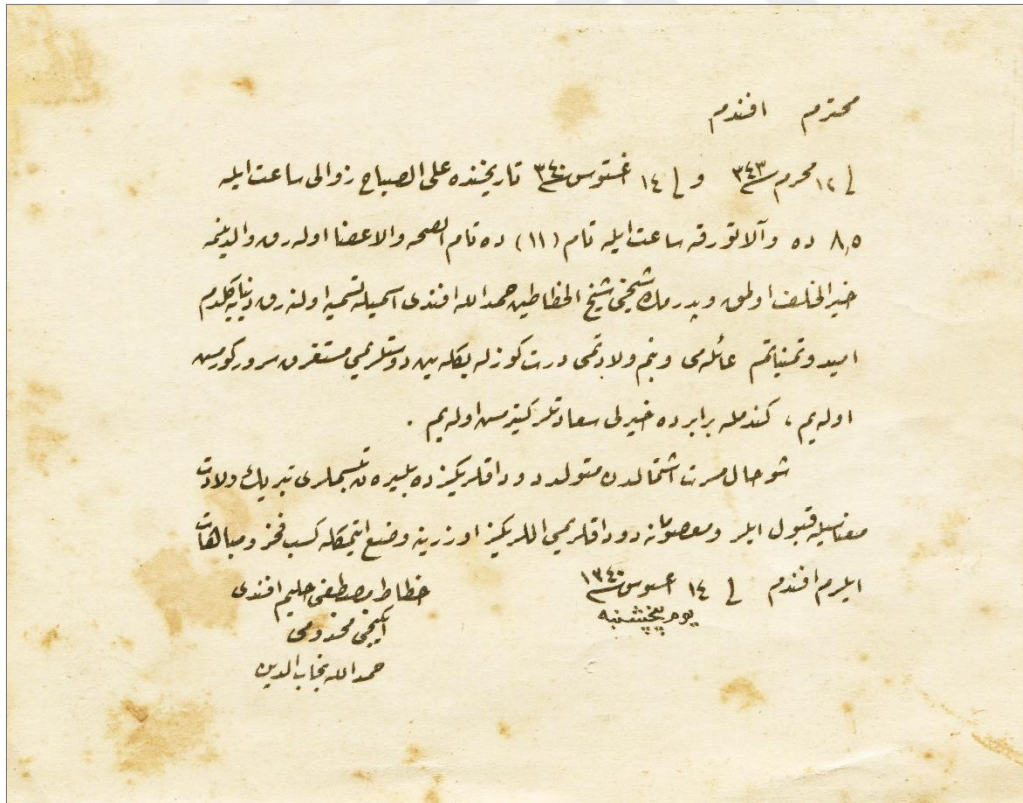 محترم افندم
فی ١٢ محرم سنه ٣٤٣ و فی ١٤ اغستوس سنه ٣٤٠ تاریخنده علی الصباح زوالی ساعت ایله
٨,٥ ده و آلاتورقه ساعت ایله تام (١١) ده تام الصحه والاعضا اوله رق والدینمه
خیر الخلف اولمق و پدرمك شیخی شیخ الخطاطین حمد الله افندی اسمیله تسمیه اولنه رق دنیایه كلدم
امید و تمنیاتم عائله می و بنم ولادتمی درت كوزله بكله ین دوستلریمی مستغرق سرور كورمس
اوله یم ، كندمله برابر ده خیرلی سعادتلر كتیرمس اوله یم .
شو حال مسرت اشتمالدن متولد دوداقلریكزده بلیره ن تبسملری تبریك ولادت
معناسیله قبول ایلر و معصومانه دوداقلریمی اللریكز اوزرینه وضع ایتمكله كسب فخر و مباهات
ایلرم افندم فی ١٤ اغستوس سنه ١٣٤٠
یوم پنجشنبه
خطاط مصطفی حلیم افندی
ایكنجی مخدومی
حمد الله نجاب الدین